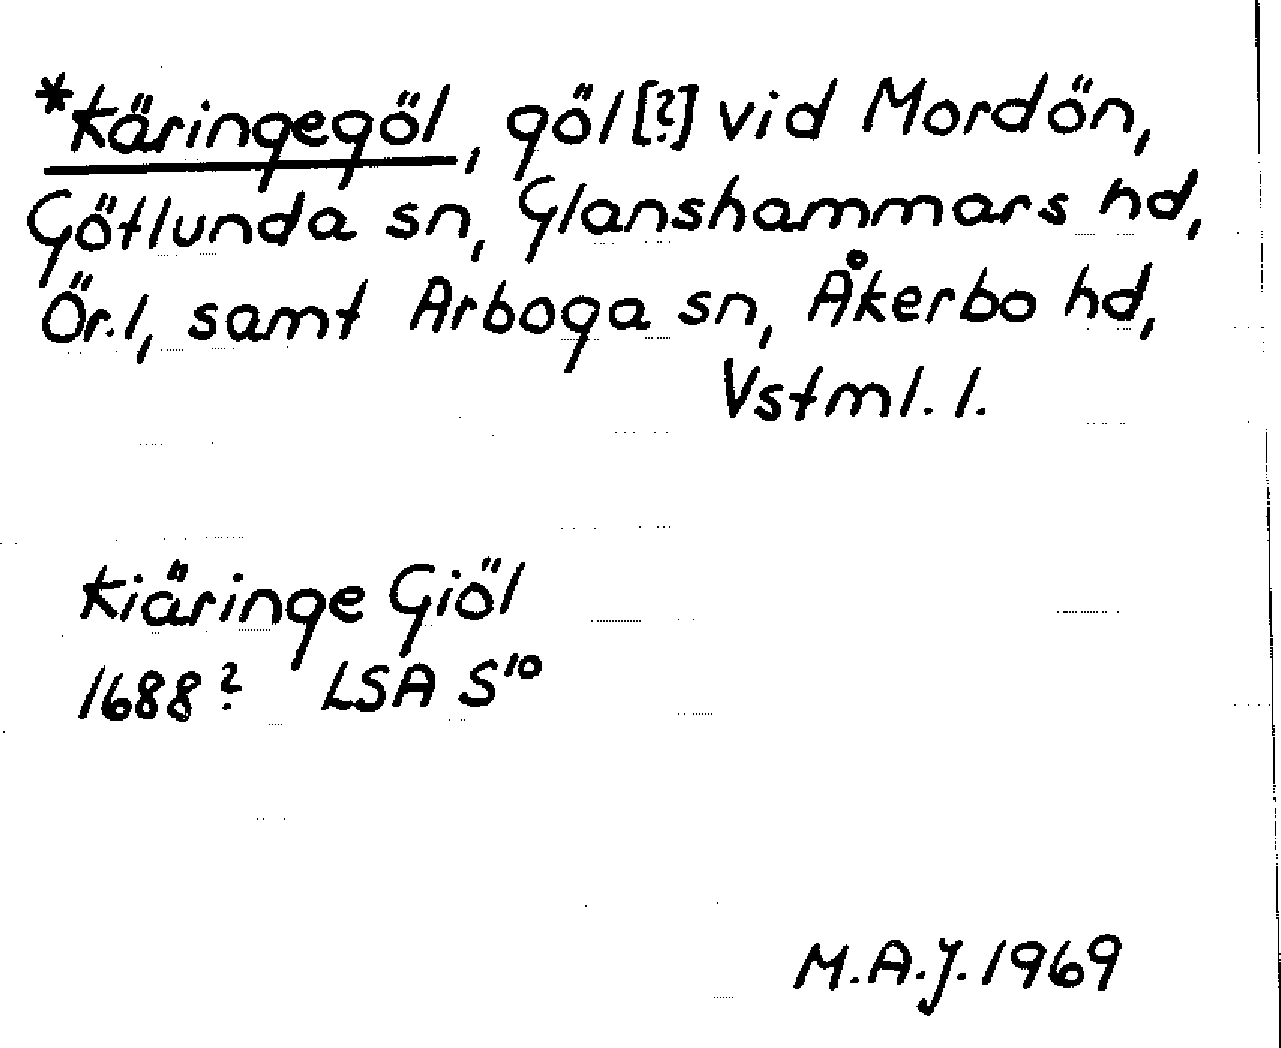 *Käringegöl, göl [?] vid Mordön,
Götlunda sn, Glanshammars hd,
Ör.l, samt Arboga sn, Åkerbo hd,
Vstml. l.
Kiäringe Giöl
1688? LSA S10
M.A.J. 1969